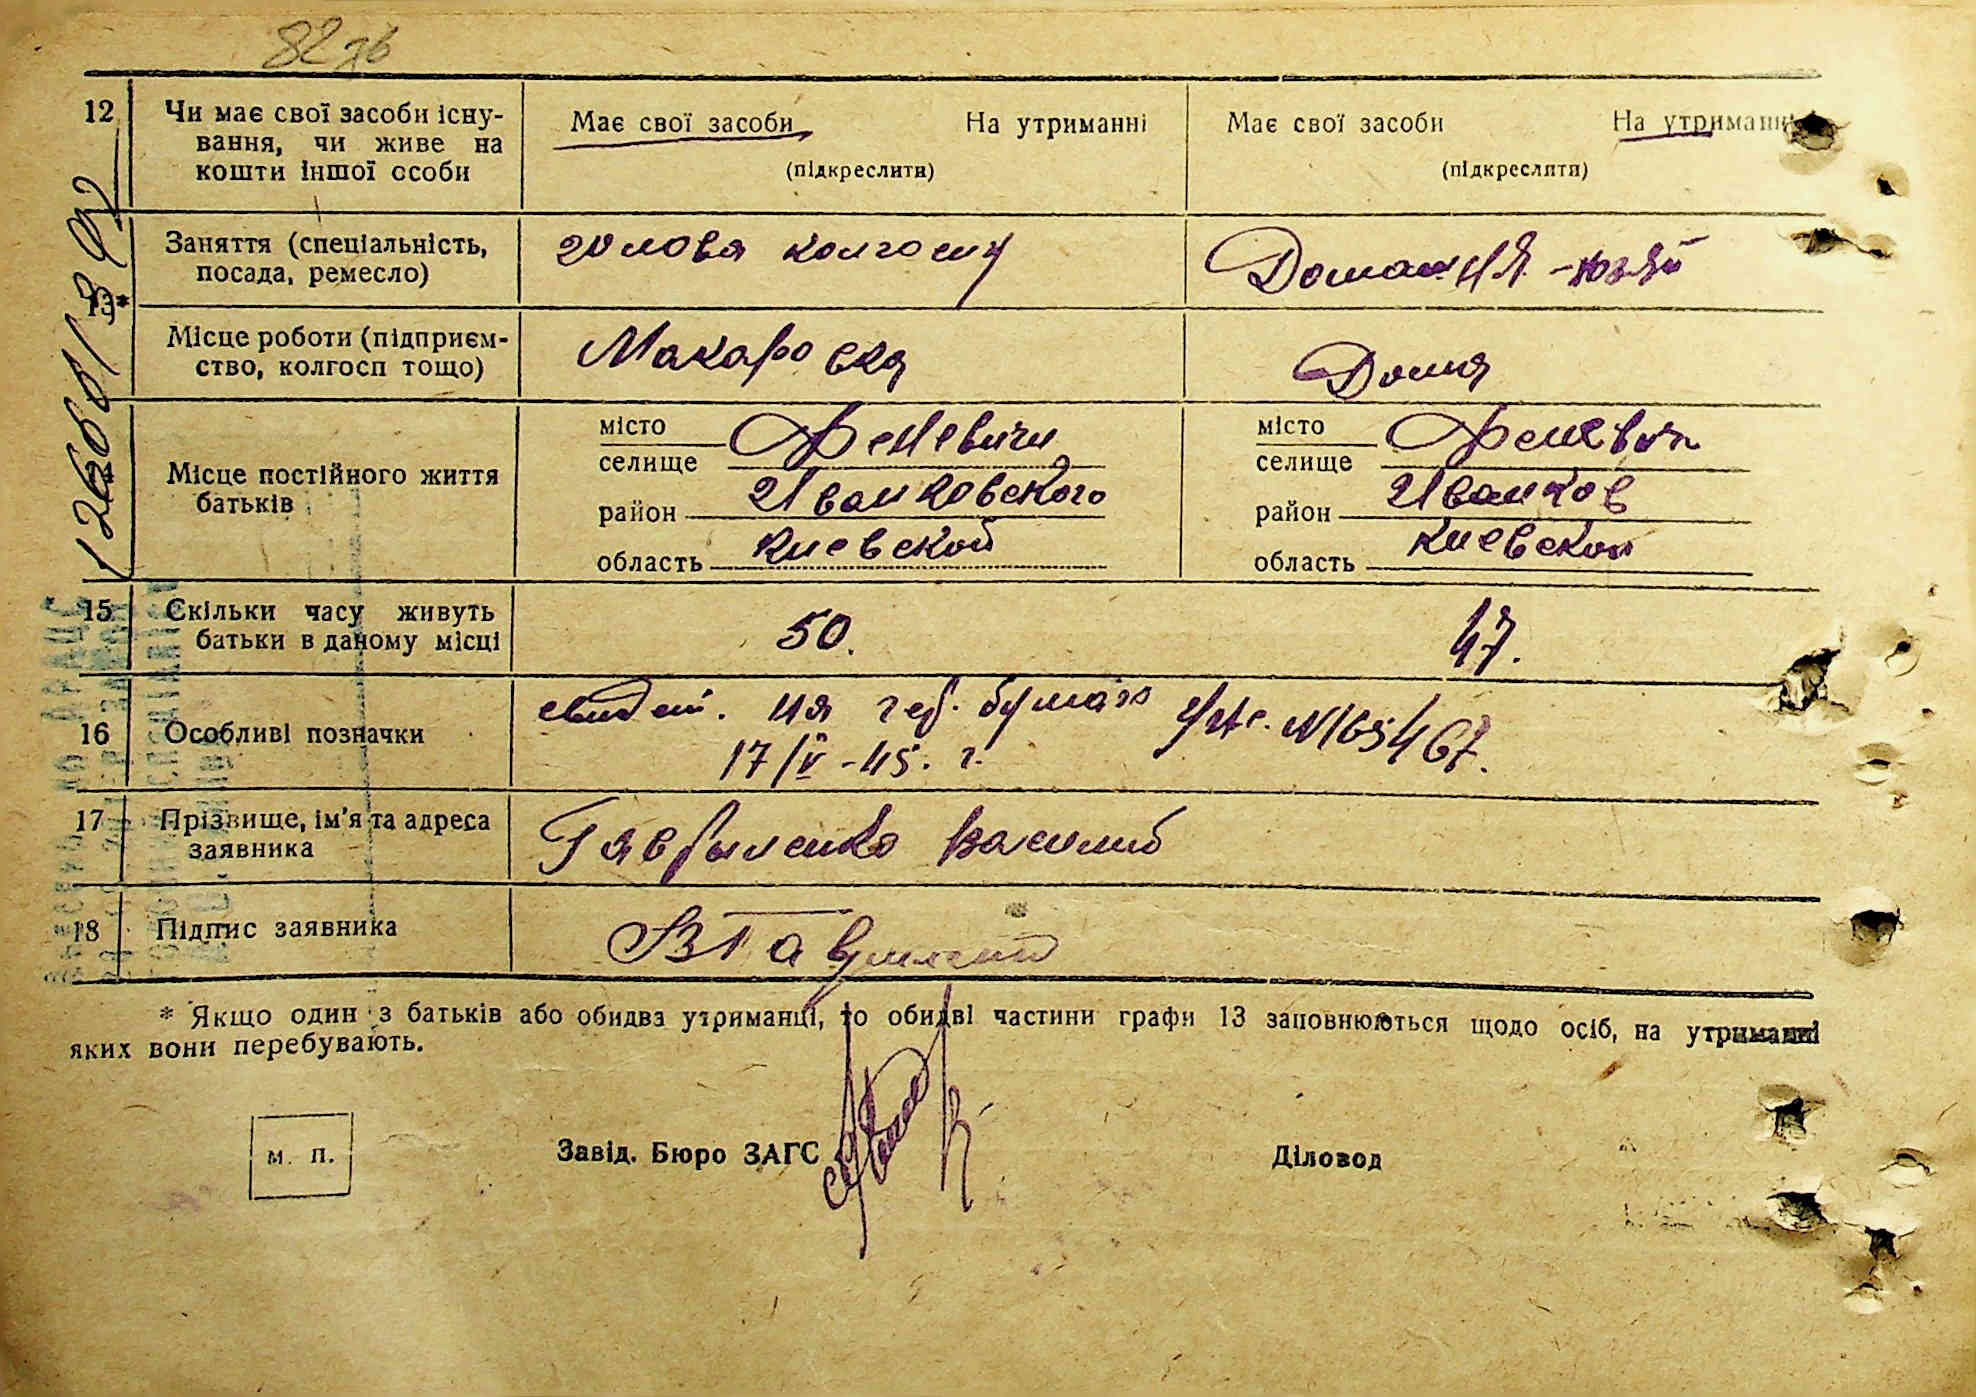 82 зв
12
Чи має свої засоби існу-
вання, чи живе на
кошти іншої особи
Має свої засоби На утриманні
(підкреслити)
Має свої засоби На утриманні
(підкреслити)
13*
Заняття (спеціальність,
посада, ремесло)
голова колгоспу
Домашня
Місце роботи (підприєм-
ство, колгосп тощо)
Макаровка
Дома
Місце постійного життя
батьків
місто
селище
Феневичи
район Иванковского
область Киевской
місто
селище
Феневичи
район Иванков
область Киевской
15
Скільки часу живуть
батьки в даному місці
50.
47.
16
Особливі позначки
свидет. на герб. бумаге
17/IV-45. г.
17
Прізвище, ім'я та адреса
заявника
Гавриленко Василий
18
Підпис заявника
В Гавриленко
* Якщо один з батьків або обидва утриманці, то обидві частини графи 13 заповнюються щодо осіб, на утриманні
яких вони перебувають.
м. п.
Завід. Бюро ЗАГС
Діловод